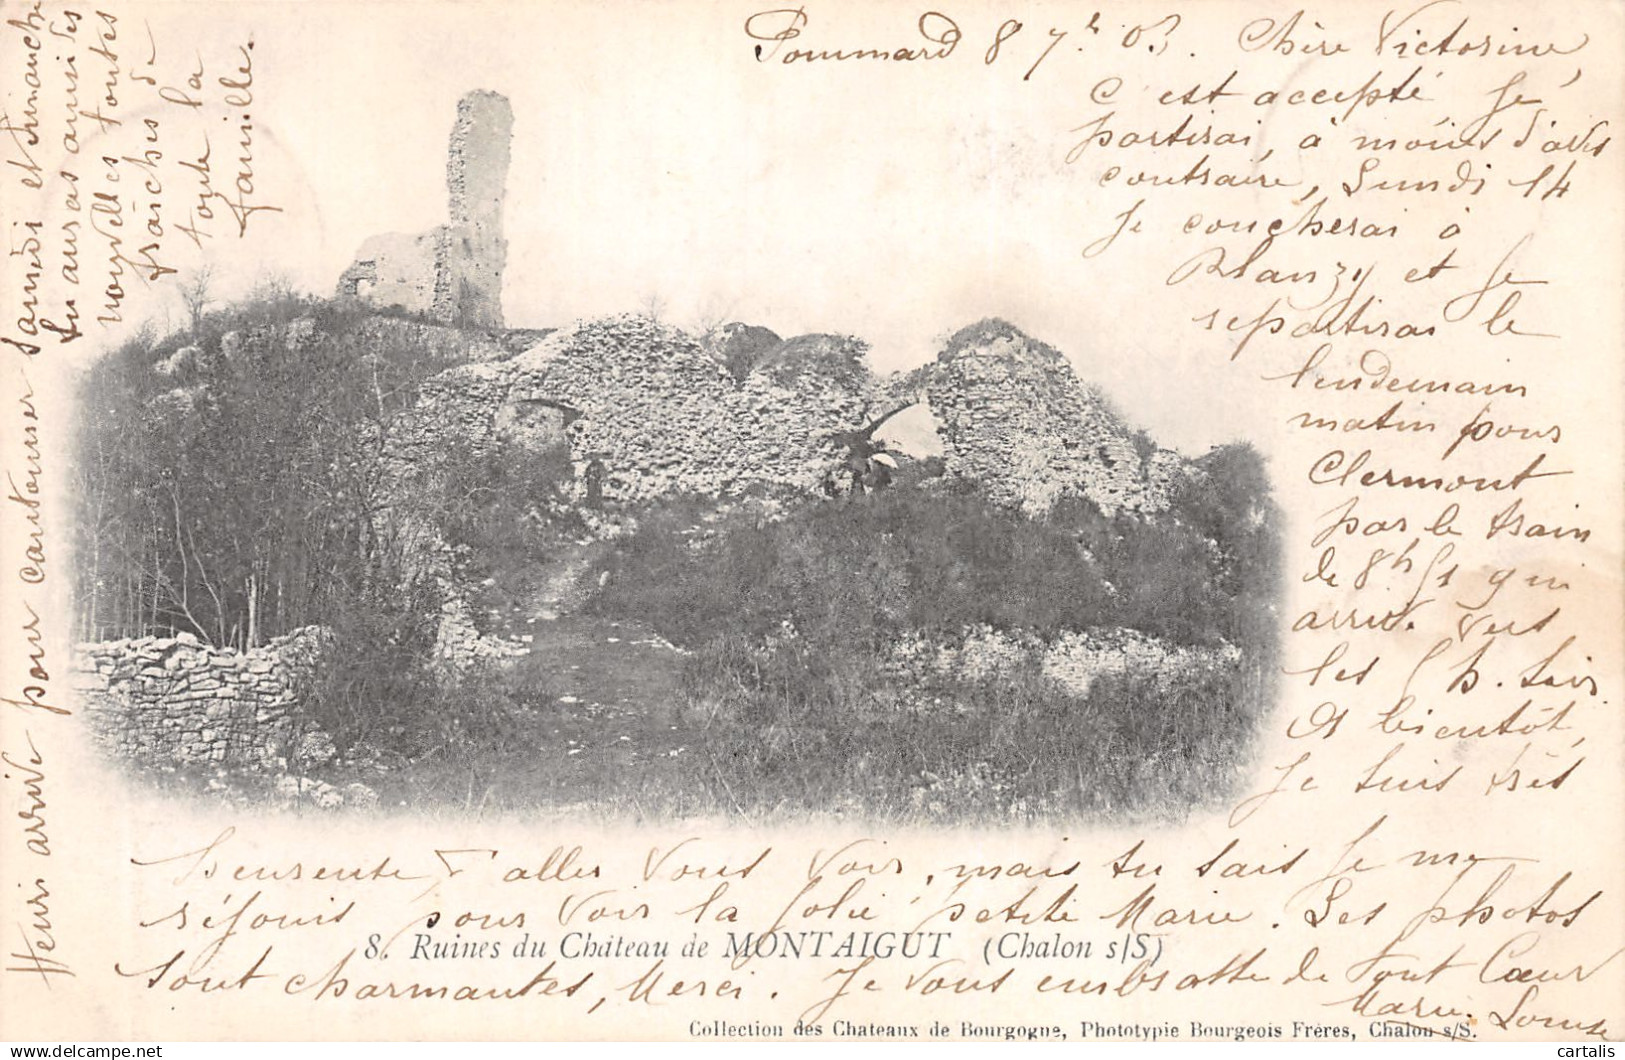 Pommard 8 7bre 03. Chère Victorine,
C'est accepté je
partirai, à moins d'avis
contraire, Lundi 14
Je coucherai à
Blanzy et je
repartirai le
lendemain
matin pour
Clermont
par le train
de 8h 51 qui
arrive vers
les 5 h. soir
A bientôt,
Je suis très
heureuse d'aller vous voir, mais tu sais je me
réjouis pour voir la jolie petite Marie. Les photos
sont charmantes, Merci. Je vous embrasse de tout Cœur
Marie Louise
Henri arrive pour cantonner Samedi et Dimanche
tu auras ainsi des
nouvelles toutes
fraîches de
toute la
famille.
8. Ruines du Château de MONTAIGUT (Chalon s/S)
Collection des Chateaux de Bourgogne, Phototypie Bourgeois Frères, Chalon s/S.
cartalis